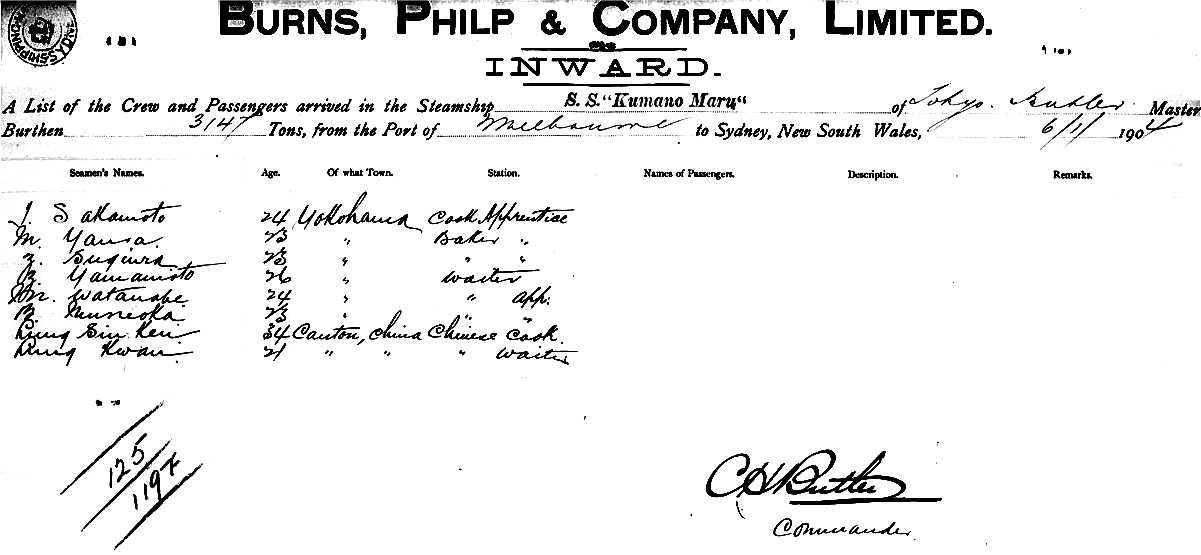 BURNS, PHILP & COMPANY, LIMITED.
INWARD.
A List of the Crew and Passengers arrived in the Steamship S. S. "Kumano Maru" of Tokyo. Butler. Master
Burthen 3147 Tons, from the Port of Melbourne to Sydney, New South Wales, 6/1/1904
Seamen's Names. Age. Of what Town. Station. Names of Passengers. Description. Remarks.
J. Sakamoto 24 Yokohama Cook Apprentice
M. 23 " Baker "
Sugiura 23 " " "
Yamamoto 26 " Waiter
Watanabe 24 " " app.
23 " " "
Sin 34 Canton, China Chinese Cook.
Kwan 21 " " " Waiter
125
1197
C H Butler
Commander.